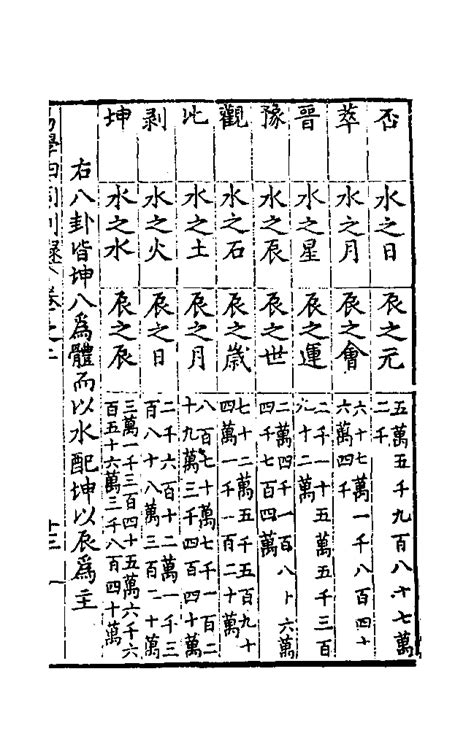 否 水之日 辰之元 五萬五千九百八十七萬
二千
萃 水之月 辰之會 六十七萬一千八百四十
六萬四千
晉 水之星 辰之運 二千一十五萬五千三百
九十二萬
豫 水之辰 辰之世 二萬四千一百八十六萬
四千七百四萬
觀 水之石 辰之歲 七十二萬五千五百九十
四萬一千一百二十萬
比 水之土 辰之月 八百七十萬七千一百二
十九萬三千四百四十萬
剥 水之火 辰之日 二千六百十二萬一千三
百八十八萬三百二十萬
坤 水之水 辰之辰 三萬一千三百四十五萬六千六
百五十六萬三千八百四十萬
右八卦皆坤八爲體而以水配坤以辰爲主
易學四同別録 卷之二 十三